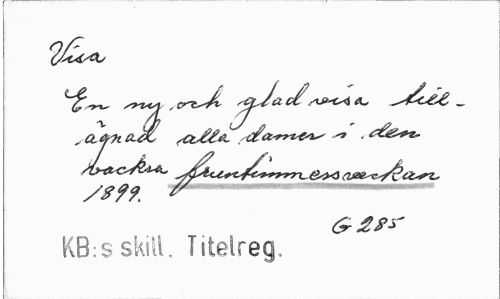 Visa
En ny och glad visa till-
ägnad alla damer i den
vackra fruntimmersveckan
1899.
G 285
KB:s skill. Titelreg.